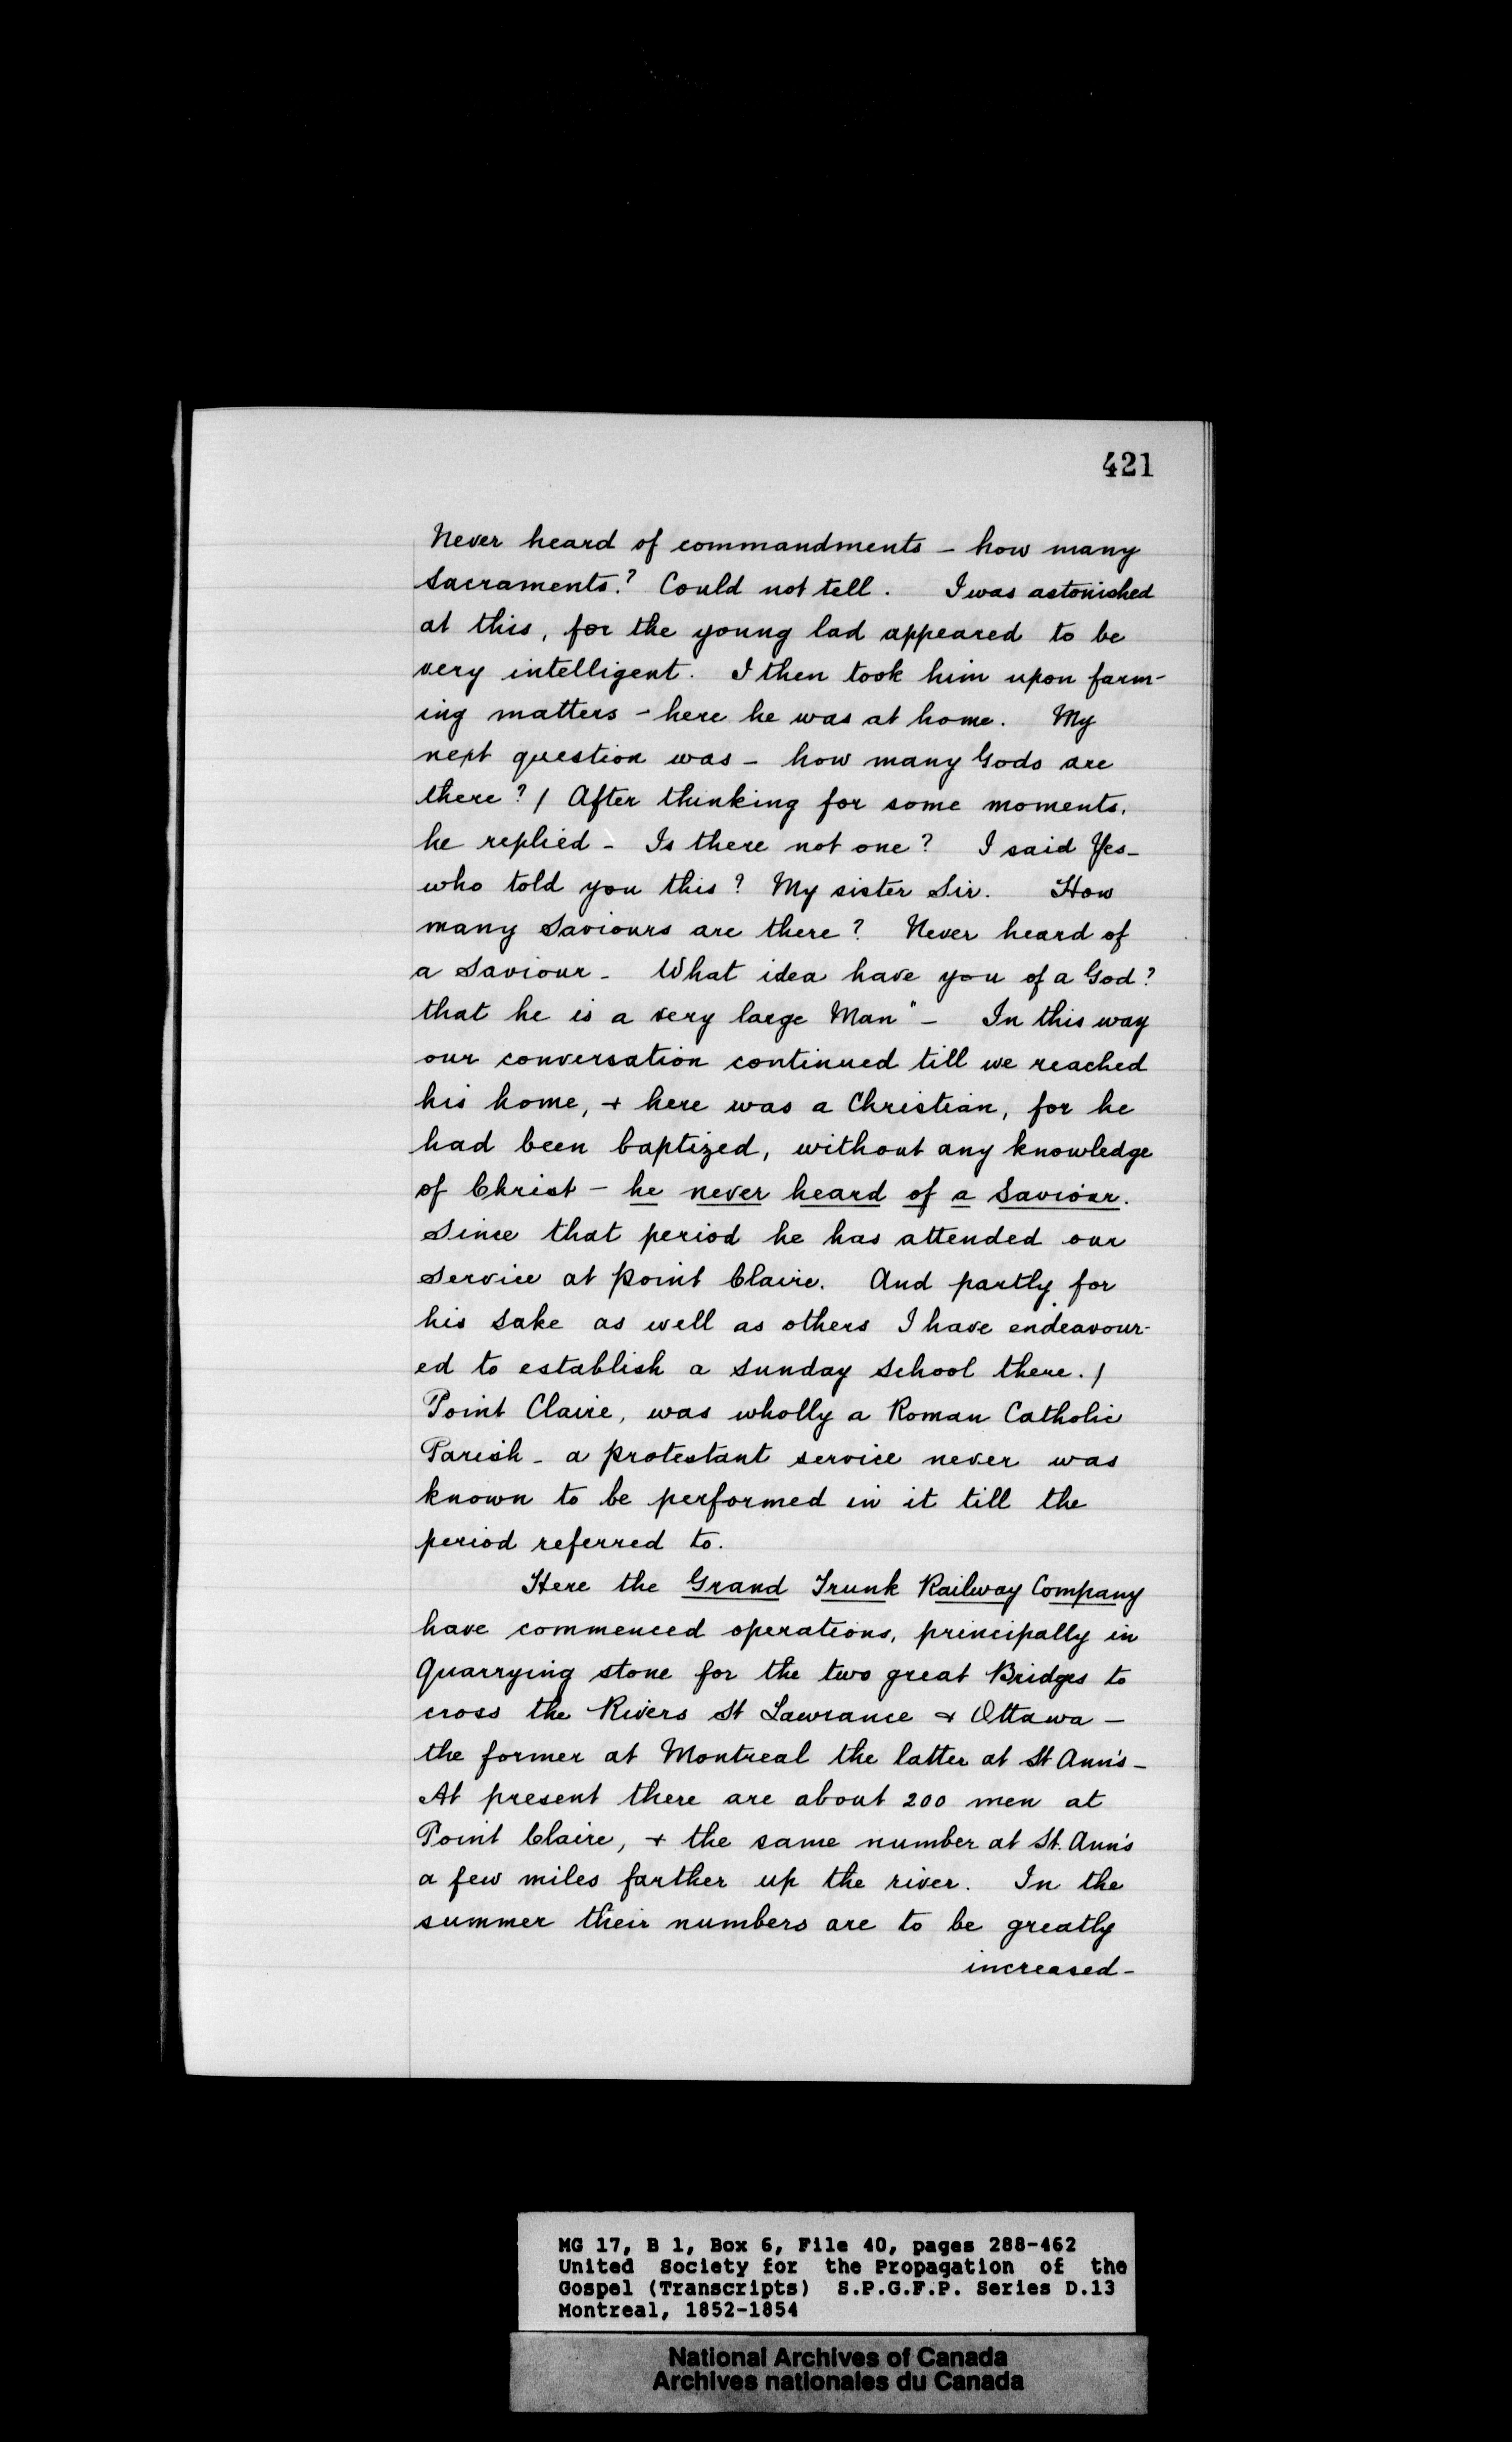 421
Never heard of commandments - how many
sacraments? Could not tell. I was astonished
at this, for the young lad appeared to be
very intelligent. I then took him upon farm-
ing matters - here he was at home. My
next question was - how many Gods are
there? / After thinking for some moments,
he replied - Is there not one? I said Yes -
who told you this? My sister Sir. How
many Saviours are there? Never heard of
a Saviour - What idea have you of a God?
that he is a very large Man" - In this way
our conversation continued till we reached
his home, + here was a Christian, for he
had been baptized, without any knowledge
of Christ - he never heard of a Saviour.
Since that period he has attended our
Service at Point Claire. And partly for
his sake as well as others I have endeavour-
ed to establish a Sunday School there. /
Point Claire, was wholly a Roman Catholic
Parish - a protestant service never was
known to be performed in it till the
period referred to.
Here the Grand Trunk Railway Company
have commenced operations, principally in
Quarrying stone for the two great Bridges to
cross the Rivers St Lawrance & Ottawa -
the former at Montreal the latter at St Ann's -
At present there are about 200 men at
Point Claire, + the same number at St. Ann's
a few miles farther up the river. In the
summer their numbers are to be greatly
increased -
MG 17, B 1, Box 6, File 40, pages 288-462
United Society for the Propagation of the
Gospel (Transcripts) S.P.G.F.P. Series D.13
Montreal, 1852-1854
National Archives of Canada
Archives nationales du Canada